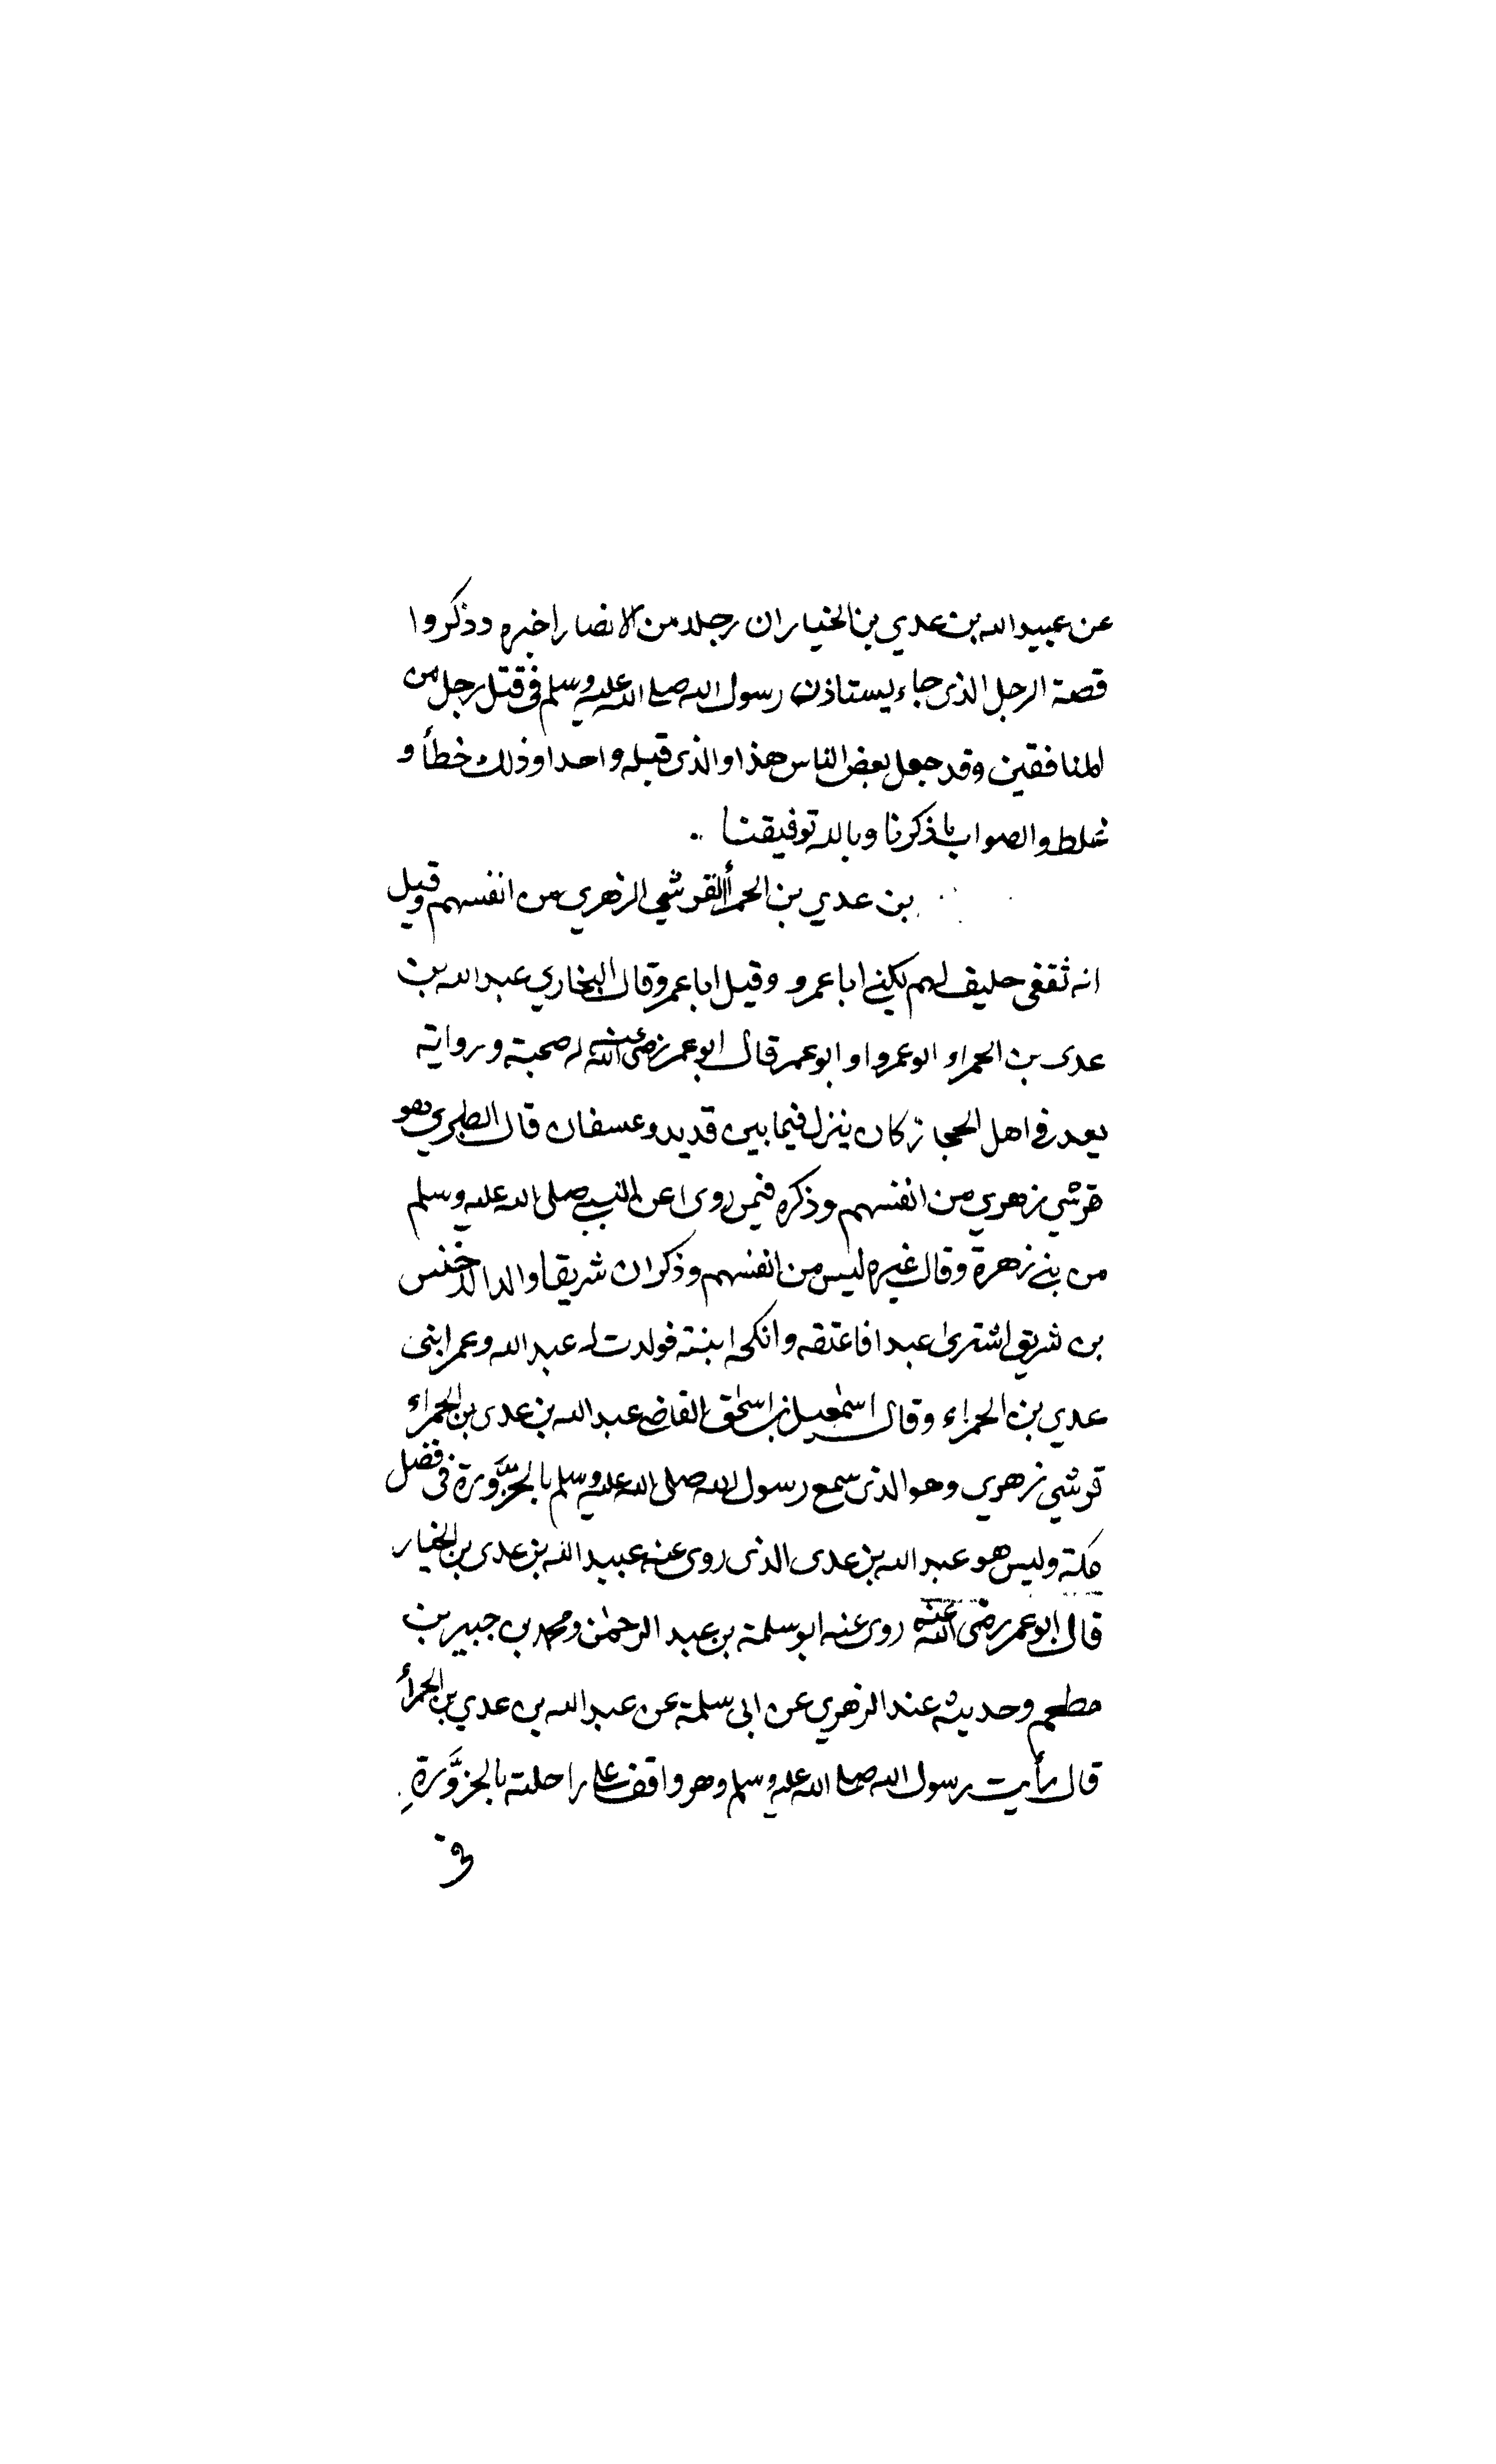 عن عبيد الله بن عدي بن الخيار ان رجلا من الانصار اخبره وذكروا
قصة الرجل الذي جاء يستاذن رسول الله صلى الله عليه وسلم في قتل رجل من
المنافقين وقد جعل بعض الناس هذا والذي قبله واحدا وذلك خطأ و
غلط والصواب ما ذكرنا وبالله توفيقنا
بن عدي بن الحمرأ القرشي الزهري من انفسهم وقيل
انه ثقفي حليف لهم يكنى ابا عمرو وقيل ابا عمر وقال البخاري عبد الله بن
عدى بن الحمراء ابو عمرو او ابو عمر قال ابو عمر رضى الله عنه له صحبة ورواية
يعد في اهل الحجاز كان ينزل فيما بين قديد وعسفان قال الطبري هو
قرشي زهري من انفسهم وذكره فيمن روى عن النبي صلى الله عليه وسلم
من بني زهرة وقال غيره ليس من انفسهم وذكر ان شريقا والد الاخنس
بن شريق اشترى عبدا فاعتقه وانكحه ابنته فولدت له عبد الله وعمر ابنى
عدي بن الحمراء وقال اسمعيل بن اسحق القاضي عبد الله بن عدى بن الحمراء
قرشي زهري وهو الذي سمع رسول الله صلى الله عليه وسلم بالحزَّورة في فضل
مكة وليس هو عبد الله بن عدى الذي روى عنه عبيد الله بن عدى بن الخيار
قال ابو عمر رضى الله عنه روى عنه ابو سلمة بن عبد الرحمن ومحمد بن جبير بن
مطعم وحديثه عند الزهري عن ابى سلمة عن عبد الله بن عدي بن الحمرأ
قال رأيت رسول الله صلى الله عليه وسلم وهو واقف على راحلته بالحزوَّرةِ
في